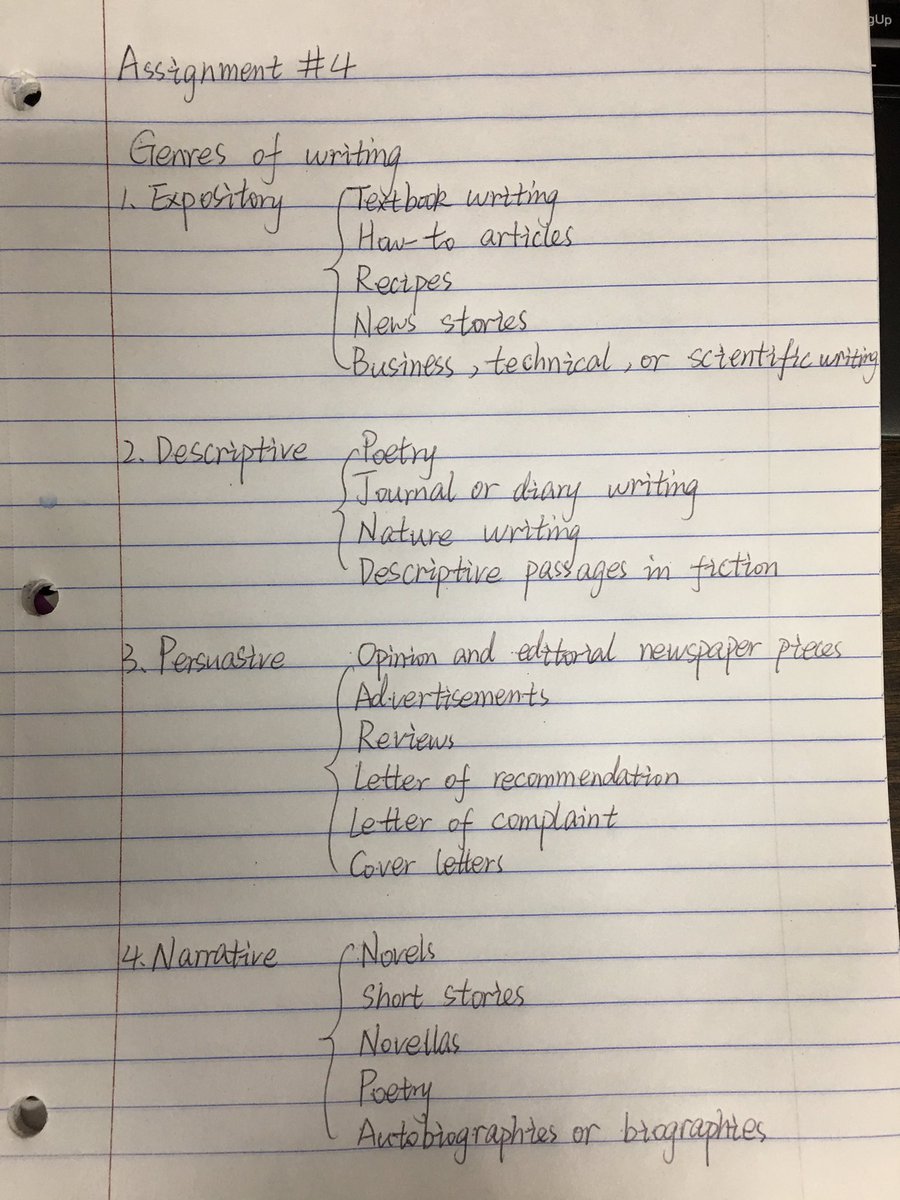 gUp
Assignment #4
Genres of writing
1. Expository Textbook writing
How-to articles
Recipes
News stories
Business, technical, or scientific writing
2. Descriptive Poetry
Journal or diary writing
Nature writing
Descriptive passages in fiction
3. Persuasive Opinion and editorial newspaper pieces
Advertisements
Reviews
Letter of recommendation
Letter of complaint
Cover letters
4. Narrative Novels
Short stories
Novellas
Poetry
Autobiographies or biographies